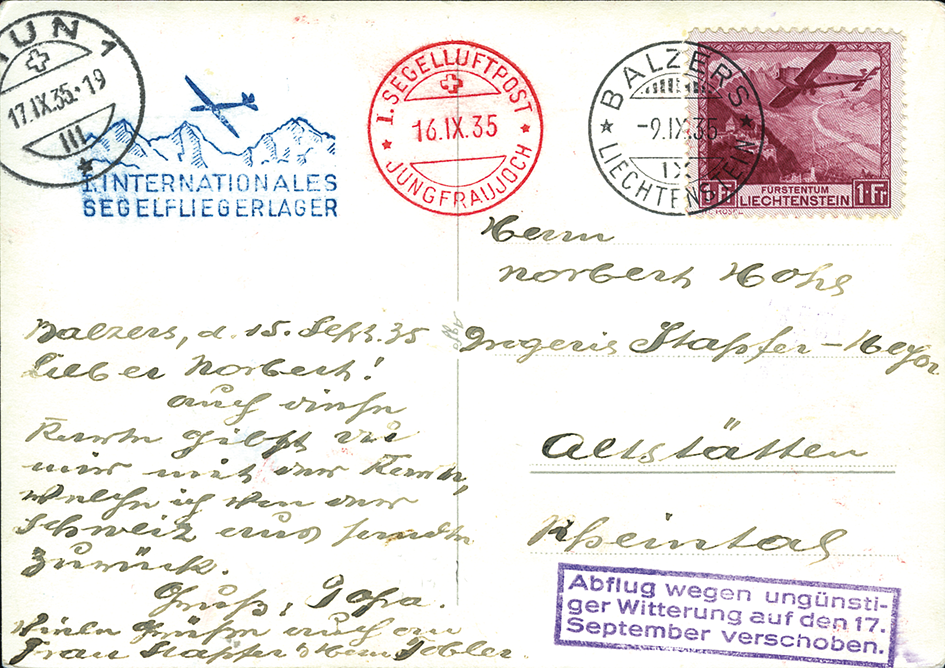 THUN 1
17.IX.35.-19
III
I. INTERNATIONALES
SEGELFLIEGERLAGER
I. SEGELLUFTPOST
16.IX.35
JUNGFRAUJOCH
BALZERS
-9.IX.35
IX
LIECHTENSTEIN
FÜRSTENTUM
LIECHTENSTEIN
1 Fr
1 Fr
Herrn
Norbert
Drogerie Stapfer-Meyer
Altstätten
Rheintal
Balzers, d. 15. Sept. 35
Lieber Norbert!
Auch diese
Karte gibst du
mir mit der Karte,
welche ich von der
Schweiz aus sandte
zurück.
Gruß,
Viele Grüße auch an
Frau Stapfer & Tobler.
Abflug wegen ungünsti-
ger Witterung auf den 17.
September verschoben.